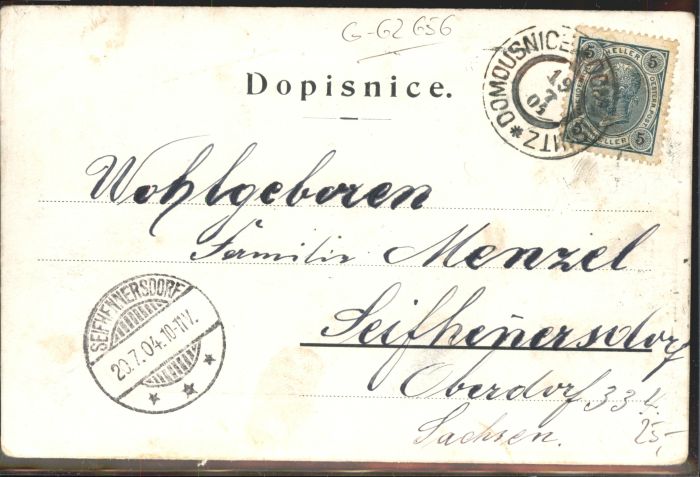 G-G2 656
Dopisnice.
DOMOUSNICE
19
7
04
5 HELLER 5
5 HELLER 5
Wohlgeboren
Familie Menzel
Seifhen̄ersdorf
Oberdorf 334.
Sachsen.
25,-
SEIFHENNERSDORF
20.7.04.10-11V.